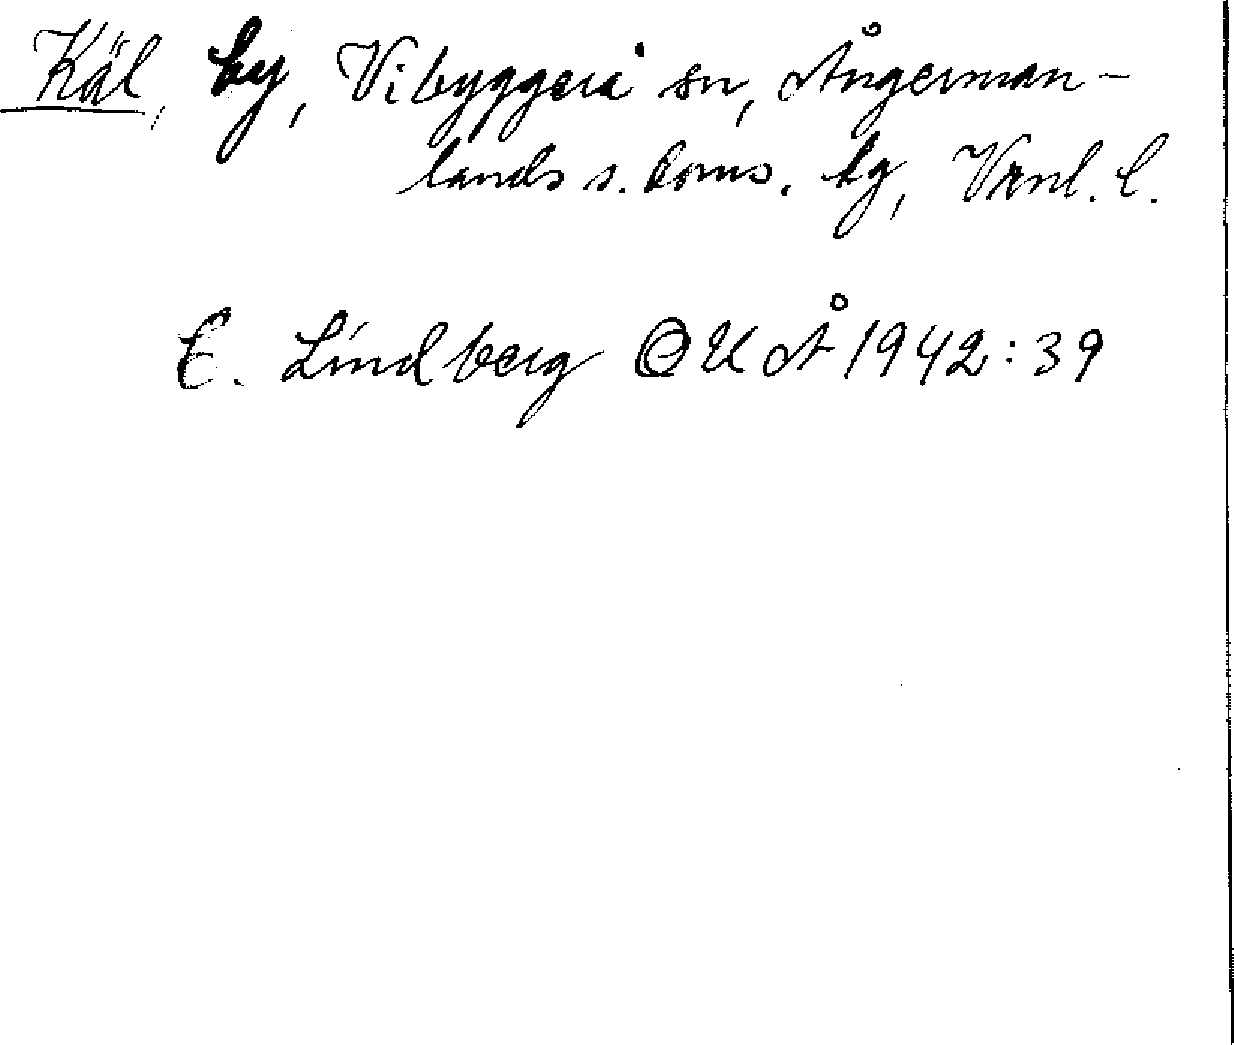 Käl, by, Vibyggerå sn, Ångerman-
lands s. doms. tg, Vrnl. l.
E. Lindberg OUÅ 1942:39